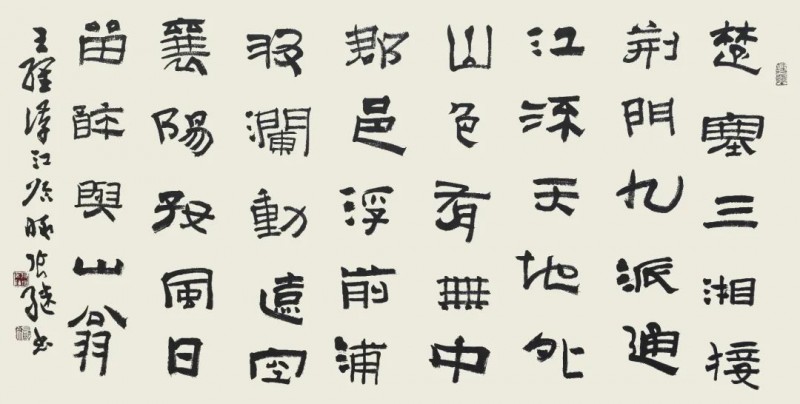 楚塞三湘接
荆門九派通
江流天地外
山色有無中
郡邑浮前浦
波瀾動遠空
襄陽好風日
留醉與山翁
王維漢江臨眺張繼書